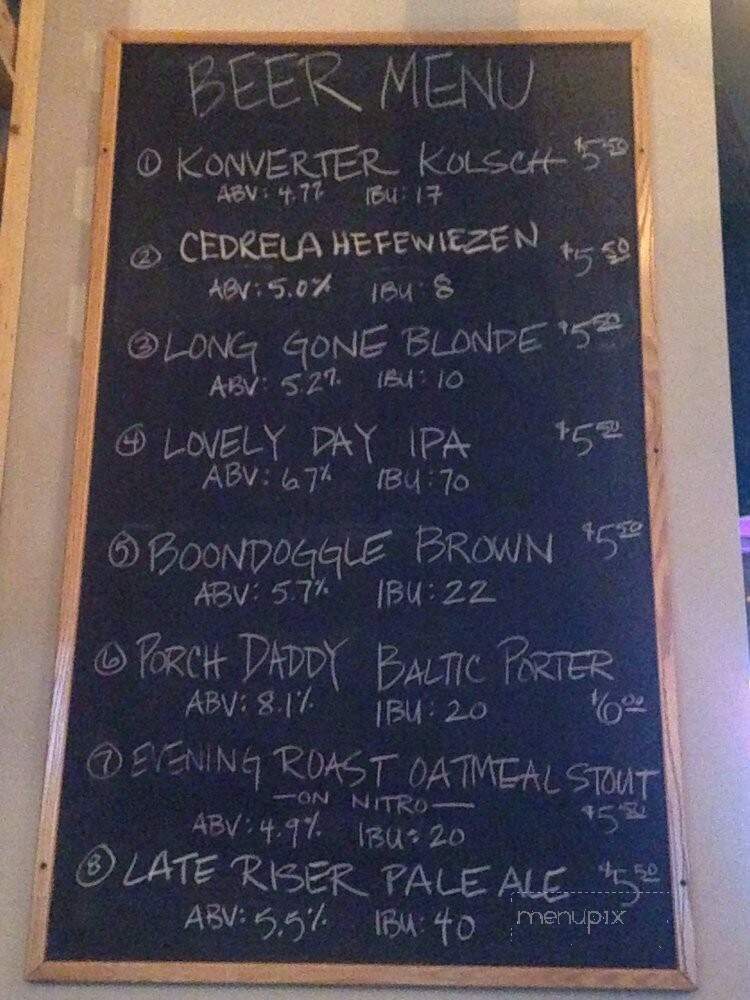 BEER MENU
① KONVERTER KOLSCH $5.50
ABV: 4.7% IBU: 17
② CEDRELA HEFEWIEZEN $5.50
ABV: 5.0% IBU: 8
③ LONG GONE BLONDE $5.50
ABV: 5.2% IBU: 10
④ LOVELY DAY IPA $5.50
ABV: 6.7% IBU: 70
⑤ BOONDOGGLE BROWN $5.50
ABV: 5.7% IBU: 22
⑥ PORCH DADDY BALTIC PORTER
ABV: 8.1% IBU: 20 $6.00
⑦ EVENING ROAST OATMEAL STOUT
—ON NITRO— $5.50
ABV: 4.9% IBU: 20
⑧ LATE RISER PALE ALE $5.50
ABV: 5.5% IBU: 40
menupix